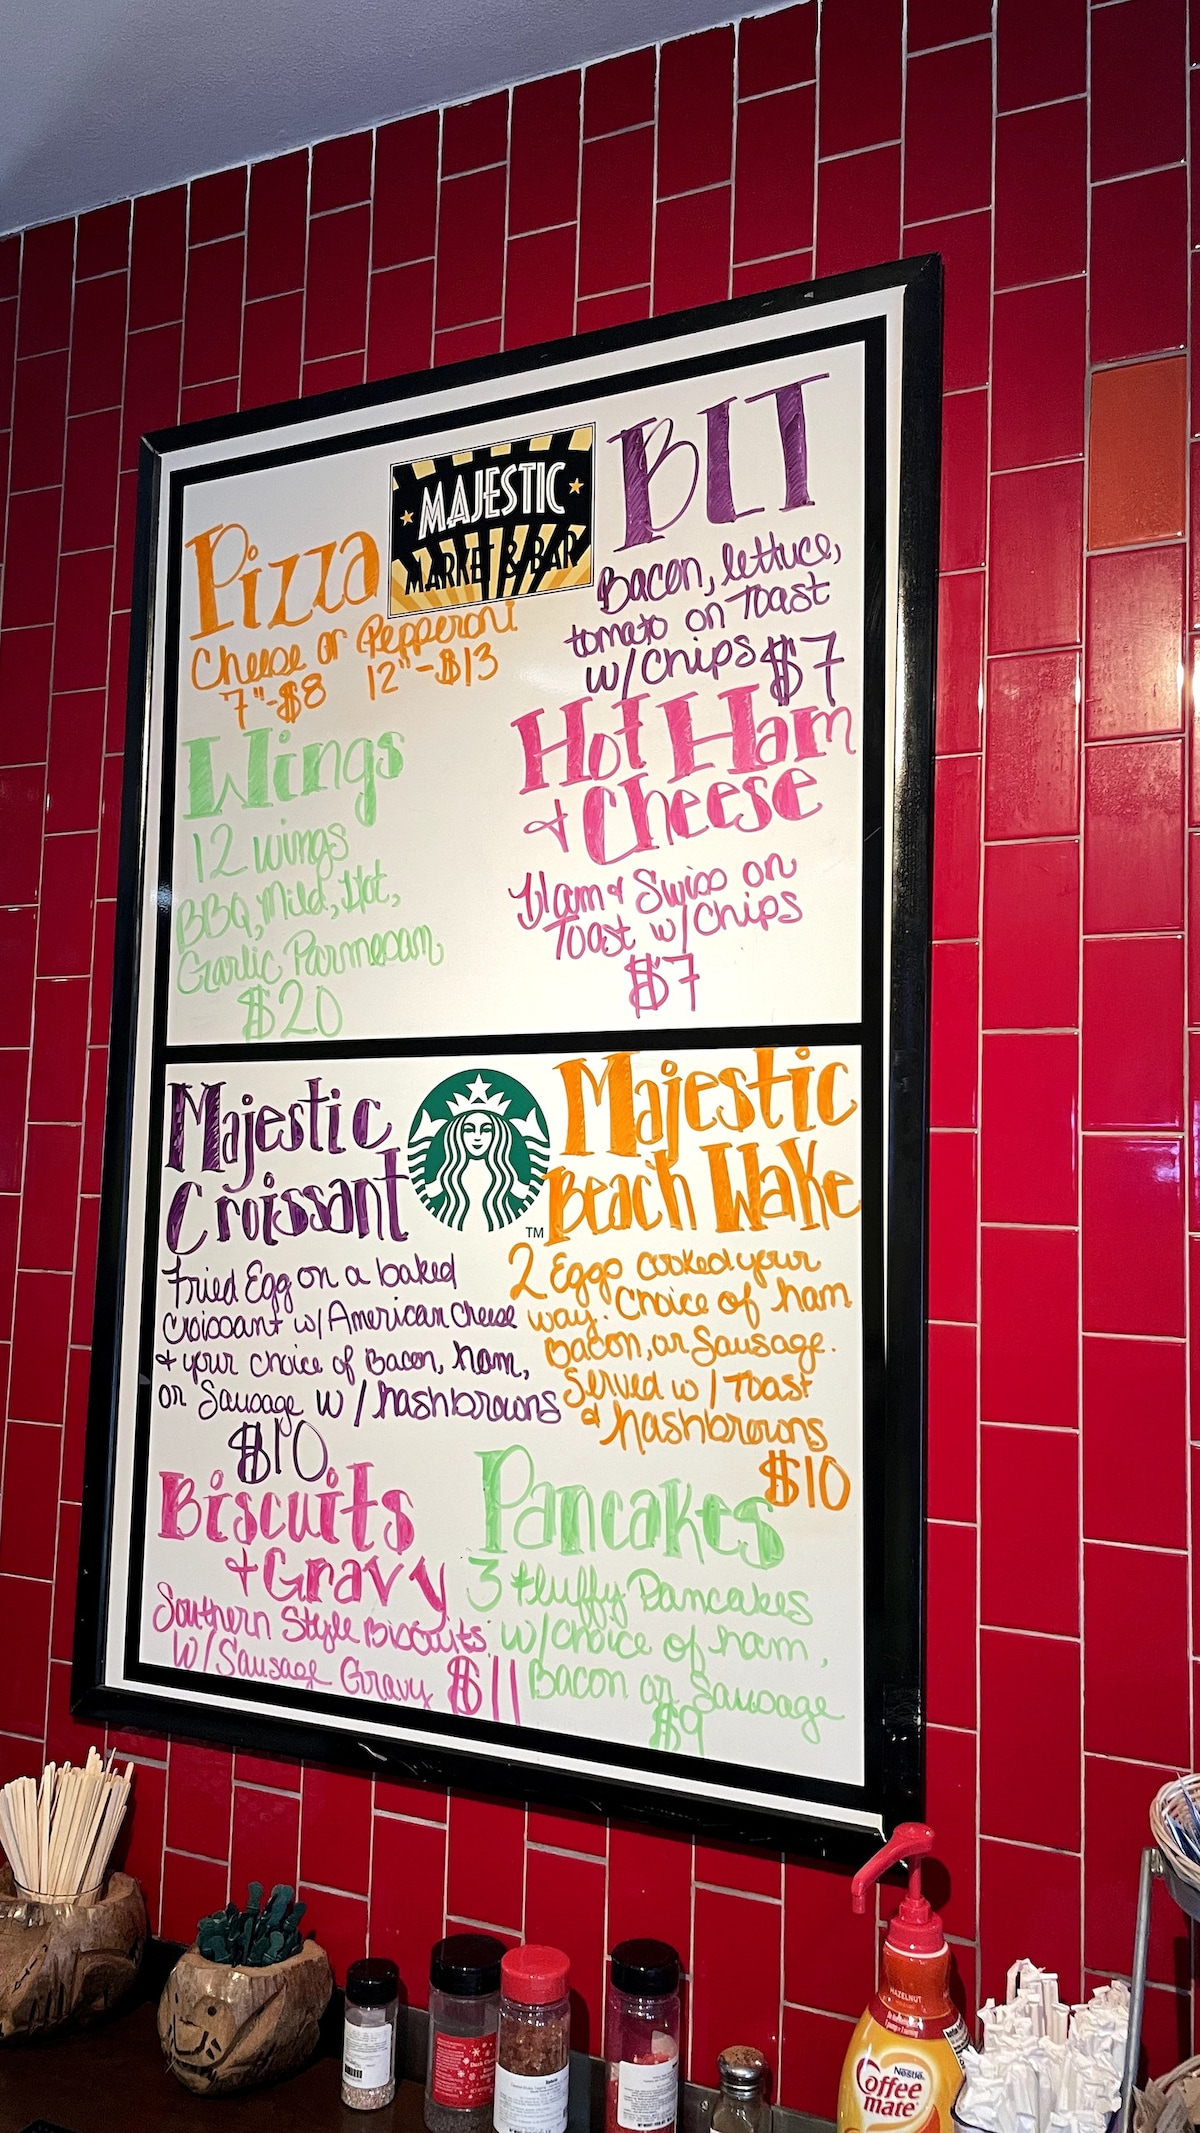 MAJESTIC
MARKET & BAR
Pizza
Cheese or Pepperoni
7"-$8 12"-$13
BLT
Bacon, lettuce,
tomato on Toast
w/Chips $7
Wings
12 wings
BBQ, Mild, Hot,
Garlic Parmesan
$20
Hot Ham
& Cheese
Ham & Swiss on
Toast w/Chips
$7
Majestic
Croissant
Fried Egg on a baked
Croissant w/American Cheese
& your choice of Bacon, ham,
or Sausage w/hashbrowns
$10
TM
Majestic
Beach Wake
2 Eggs cooked your
way. Choice of ham
Bacon, or Sausage.
Served w/Toast
& hashbrowns
$10
Biscuits
+ Gravy
Southern Style Biscuits
w/Sausage Gravy $11
Pancakes
3 fluffy Pancakes
w/choice of ham,
Bacon or Sausage
$9
HAZELNUT
Nestlé
Coffee
mate